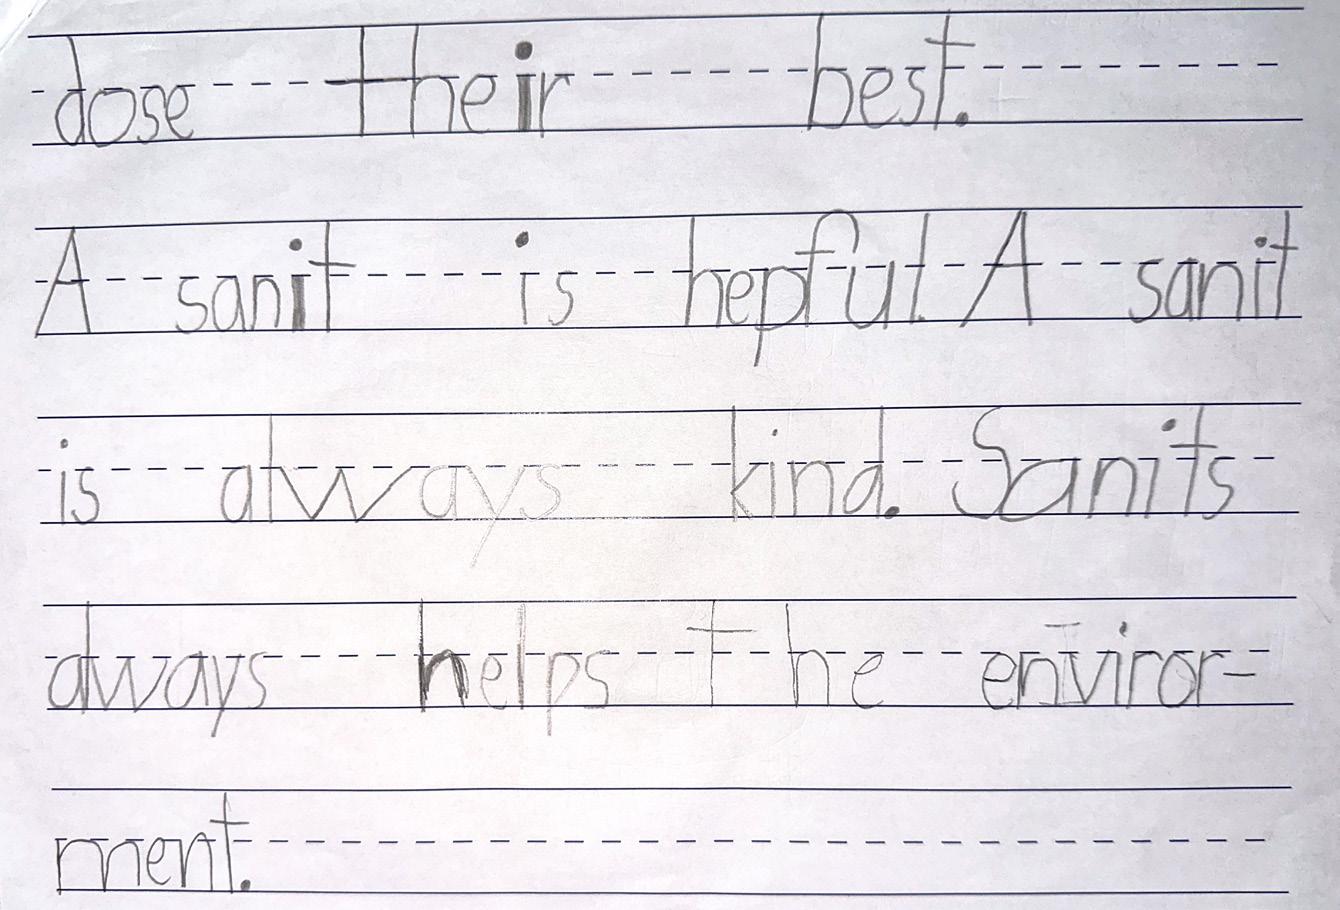 dose their best.
A sanit is hepful. A sanit
is always kind. Sanits
always helps the enviror-
ment.